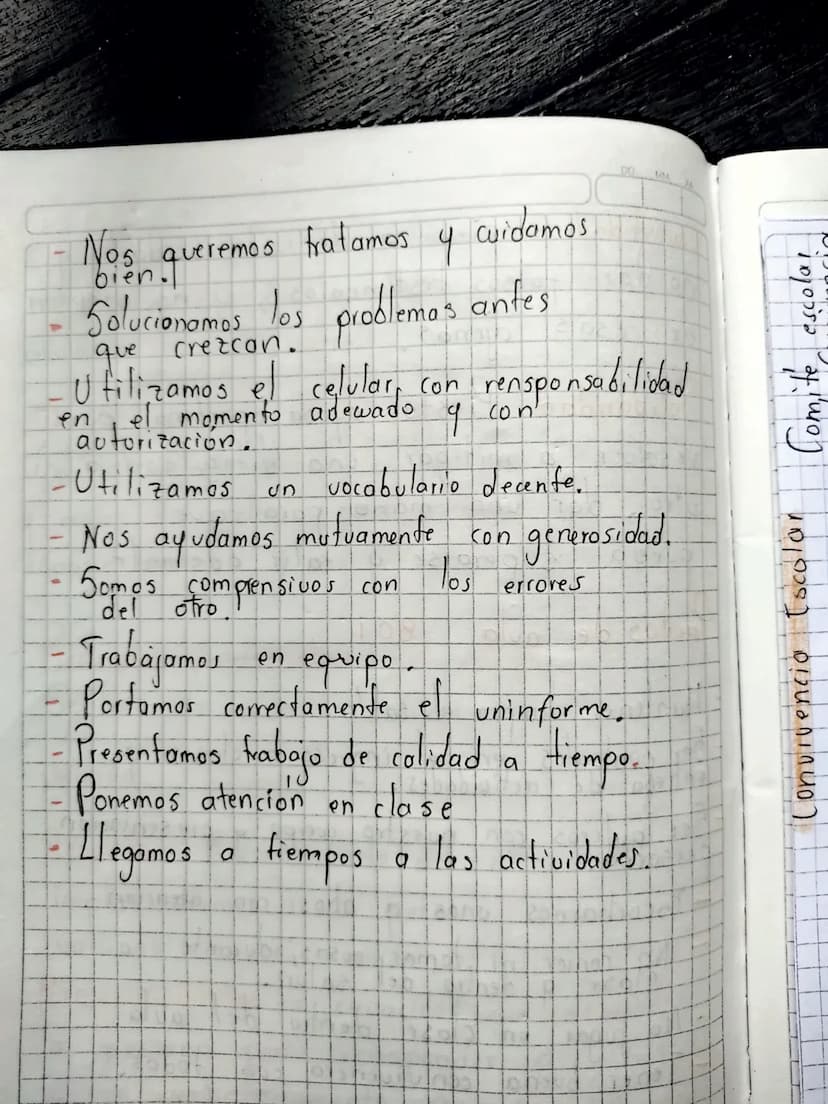 - Nos queremos tratamos y cuidamos
bien.
- Solucionamos los problemas antes
que crezcan.
- Utilizamos el celular, con rensponsabilidad
en el momento adewado y con
autorización.
- Utilizamos un vocabulario decente.
- Nos ayudamos mutuamente con generosidad.
- Somos comprensivos con los errores
del otro.
- Trabajamos en equipo.
- Portamos correctamente el uninforme.
- Presentamos trabajo de calidad a tiempo.
- Ponemos atención en clase
- Llegamos a tiempos a las actividades.
DD MM
Convivencia Escolar Comité escolar